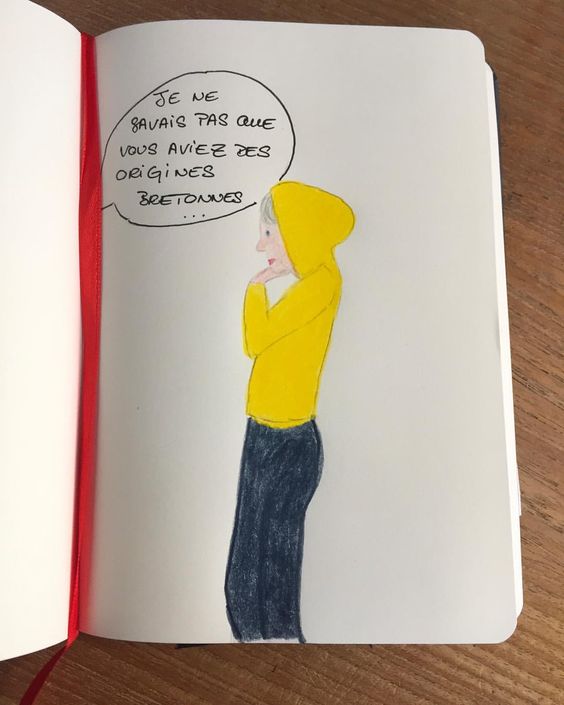 JE NE
SAVAIS PAS QUE
VOUS AVIEZ DES
ORIGINES
BRETONNES
...